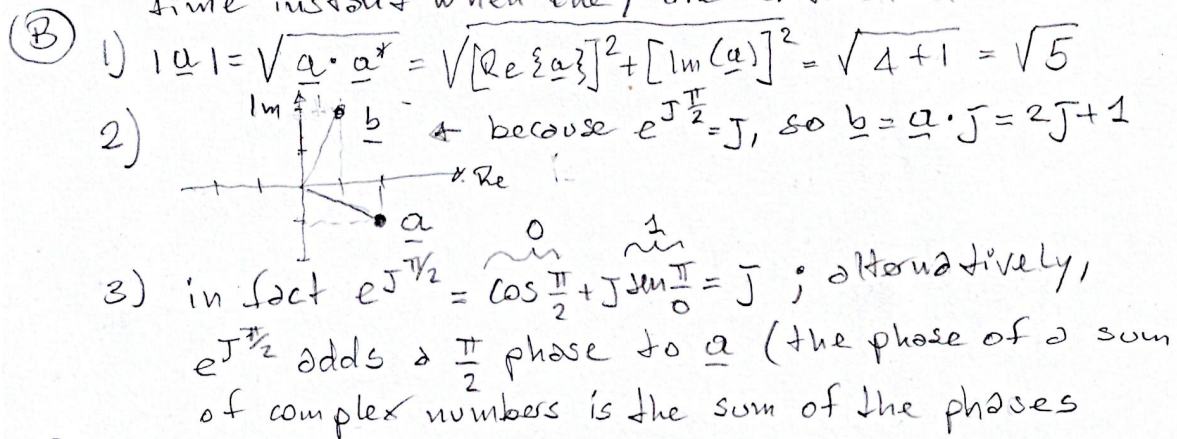 time instant when they are
(B) 1) |a| = √(a · a*) = √([Re{a}]² + [Im(a)]²) = √(4+1) = √5
2) Im b ← because e^(J π/2) = J, so b = a · J = 2J + 1
Re
a
0 1
3) in fact e^(J π/2) = cos π/2 + J sen π/0 = J ; alternatively,
e^(J π/2) adds a π/2 phase to a (the phase of a sum
of complex numbers is the sum of the phases